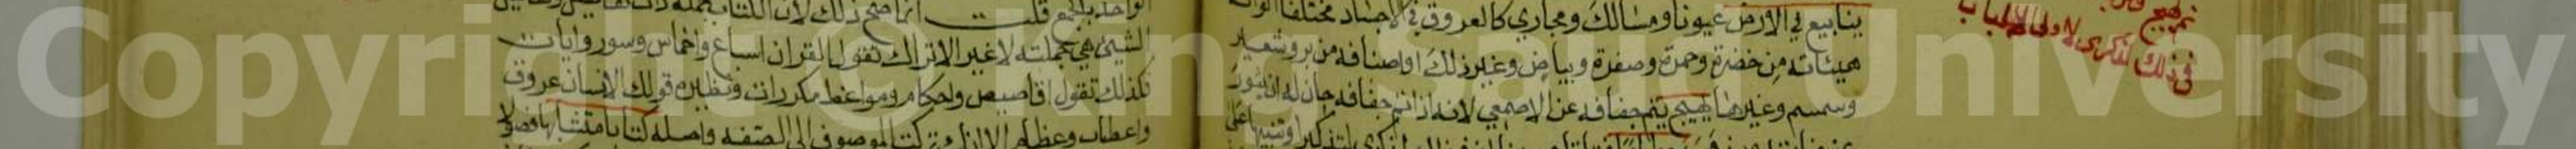 ينابيع في الارض عيونا ومسالك ومجاري كالعروق في الاجساد مختلفا الوانه
هيئاته من خضرة وحمرة وصفرة وبياض وغير ذلك او اصنافه من بر وشعير
وسمسم وغيرها يهيج يتم جفافه عن الاصمعي لانه اذا تم جفافه حان له ان يثور
لذكرى لتذكيرا وتنبيها على
يهيج
في ذلك لذكرى لاولي الالباب
الواحد بالجمع قلت انما صح ذلك لان الكتاب جملة ذات تفاصيل وتفاصيل
الشيء هي جملته لا غير الا تراك تقول القران اسباع واخماس وسور وايات
فكذلك تقول اقاصيص واحكام ومواعظ مكررات ونظيره قولك الانسان عروق
واعصاب وعظام الا انك تركت الموصوف الى الصفة واصله كتابا متشابها فصولا
Copyright © King Saud University